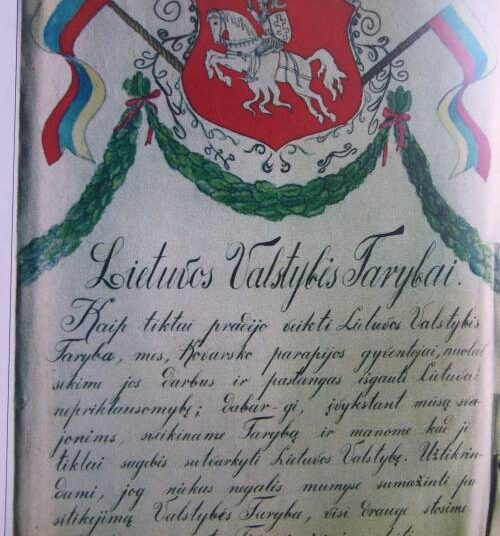 Lietuvos Valstybis Tarybai.
Kaip tiktai pradijo veikti Lietuvos Valstybis
Taryba, mes, Kovarsko parapijos gyventojai, nuolat
sekime jos darbus ir pastangas išgauti Lietuvai
nepriklausomybę; dabar gi, įvykstant musų sva-
jonims, sveikiname Tarybą ir manome kad ji
tiktai sugebis sutvarkyti Lietuvos Valstybę. Užtikrin-
dami, jog niekas negalis mumyse sumažinti pa
sitikėjimą Valstybis Taryba, visi drauge stosime